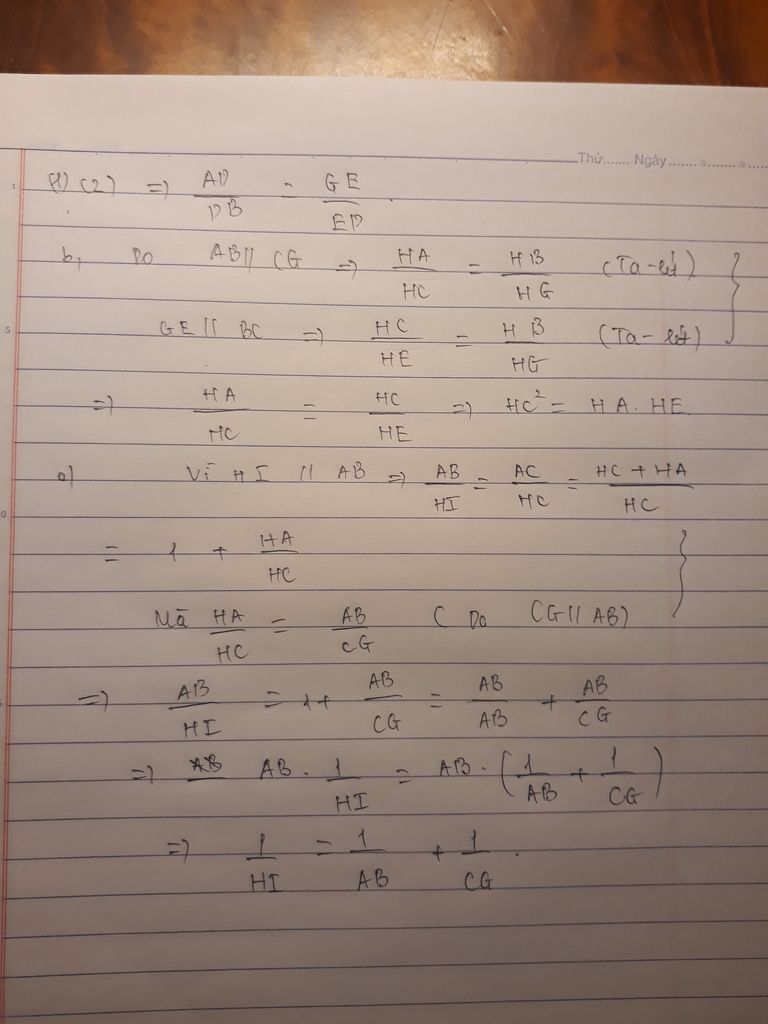 Thứ....... Ngày.......
(1) (2) => AD/DB = GE/ED.
b, Do AB // CG => HA/HC = HB/HG (Ta-lét)
GE // BC => HC/HE = HB/HG (Ta-lét)
=> HA/HC = HC/HE => HC² = HA. HE
c) Vì HI // AB => AB/HI = AC/HC = HC + HA/HC
= 1 + HA/HC
Mà HA/HC = AB/CG ( Do CG // AB)
=> AB/HI = 1 + AB/CG = AB/AB + AB/CG
=> AB . 1/HI = AB . (1/AB + 1/CG)
=> 1/HI = 1/AB + 1/CG .